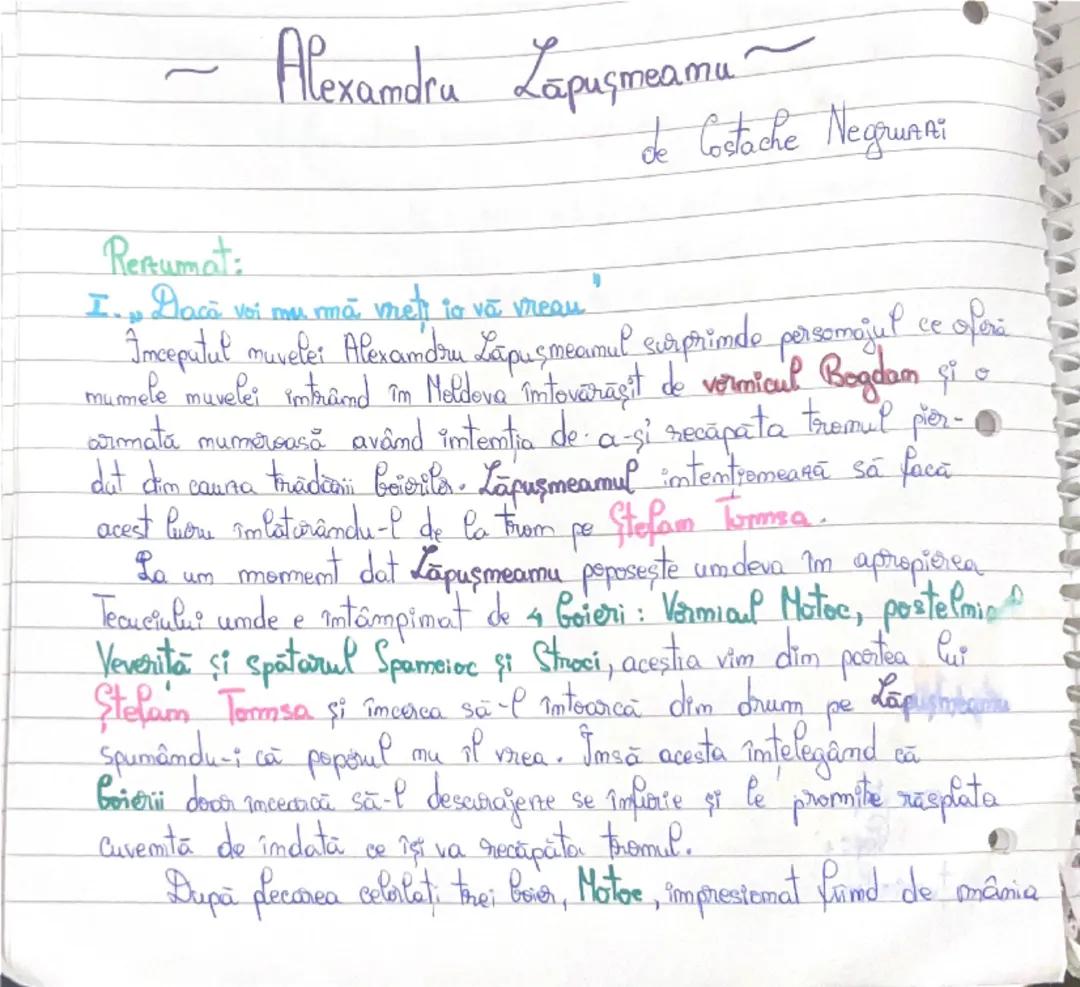 ~ Alexandru Lăpușneanu ~
de Costache Negruzzi
Rezumat:
I. „Dacă voi nu mă vreți io vă vreau"
Începutul nuvelei Alexandru Lăpușneanul surprinde personajul ce oferă
numele nuvelei intrând în Moldova întovărășit de vornicul Bogdan și o
armată numeroasă având intenția de a-și recăpăta tronul pier-
dut din cauza trădării boierilor. Lăpușneanul intenționează să facă
acest lucru înlăturându-l de la tron pe Ștefan Tomsa.
La un moment dat Lăpușneanu poposește undeva în apropierea
Tecuciului unde e întâmpinat de 4 boieri: Vornicul Motoc, postelnicul
Veveriță și spătarul Spancioc și Stroici, aceștia vin din partea lui
Ștefan Tomsa și încerca să-l întoarcă din drum pe Lăpușneanu
spunându-i că poporul nu îl vrea. Însă acesta înțelegând că
boierii doar încearcă să-l descurajeze se înfurie și le promite răsplata
cuvenită de îndată ce își va recăpăta tronul.
După plecarea celorlați trei boier, Motoc, impresionat fiind de mânia